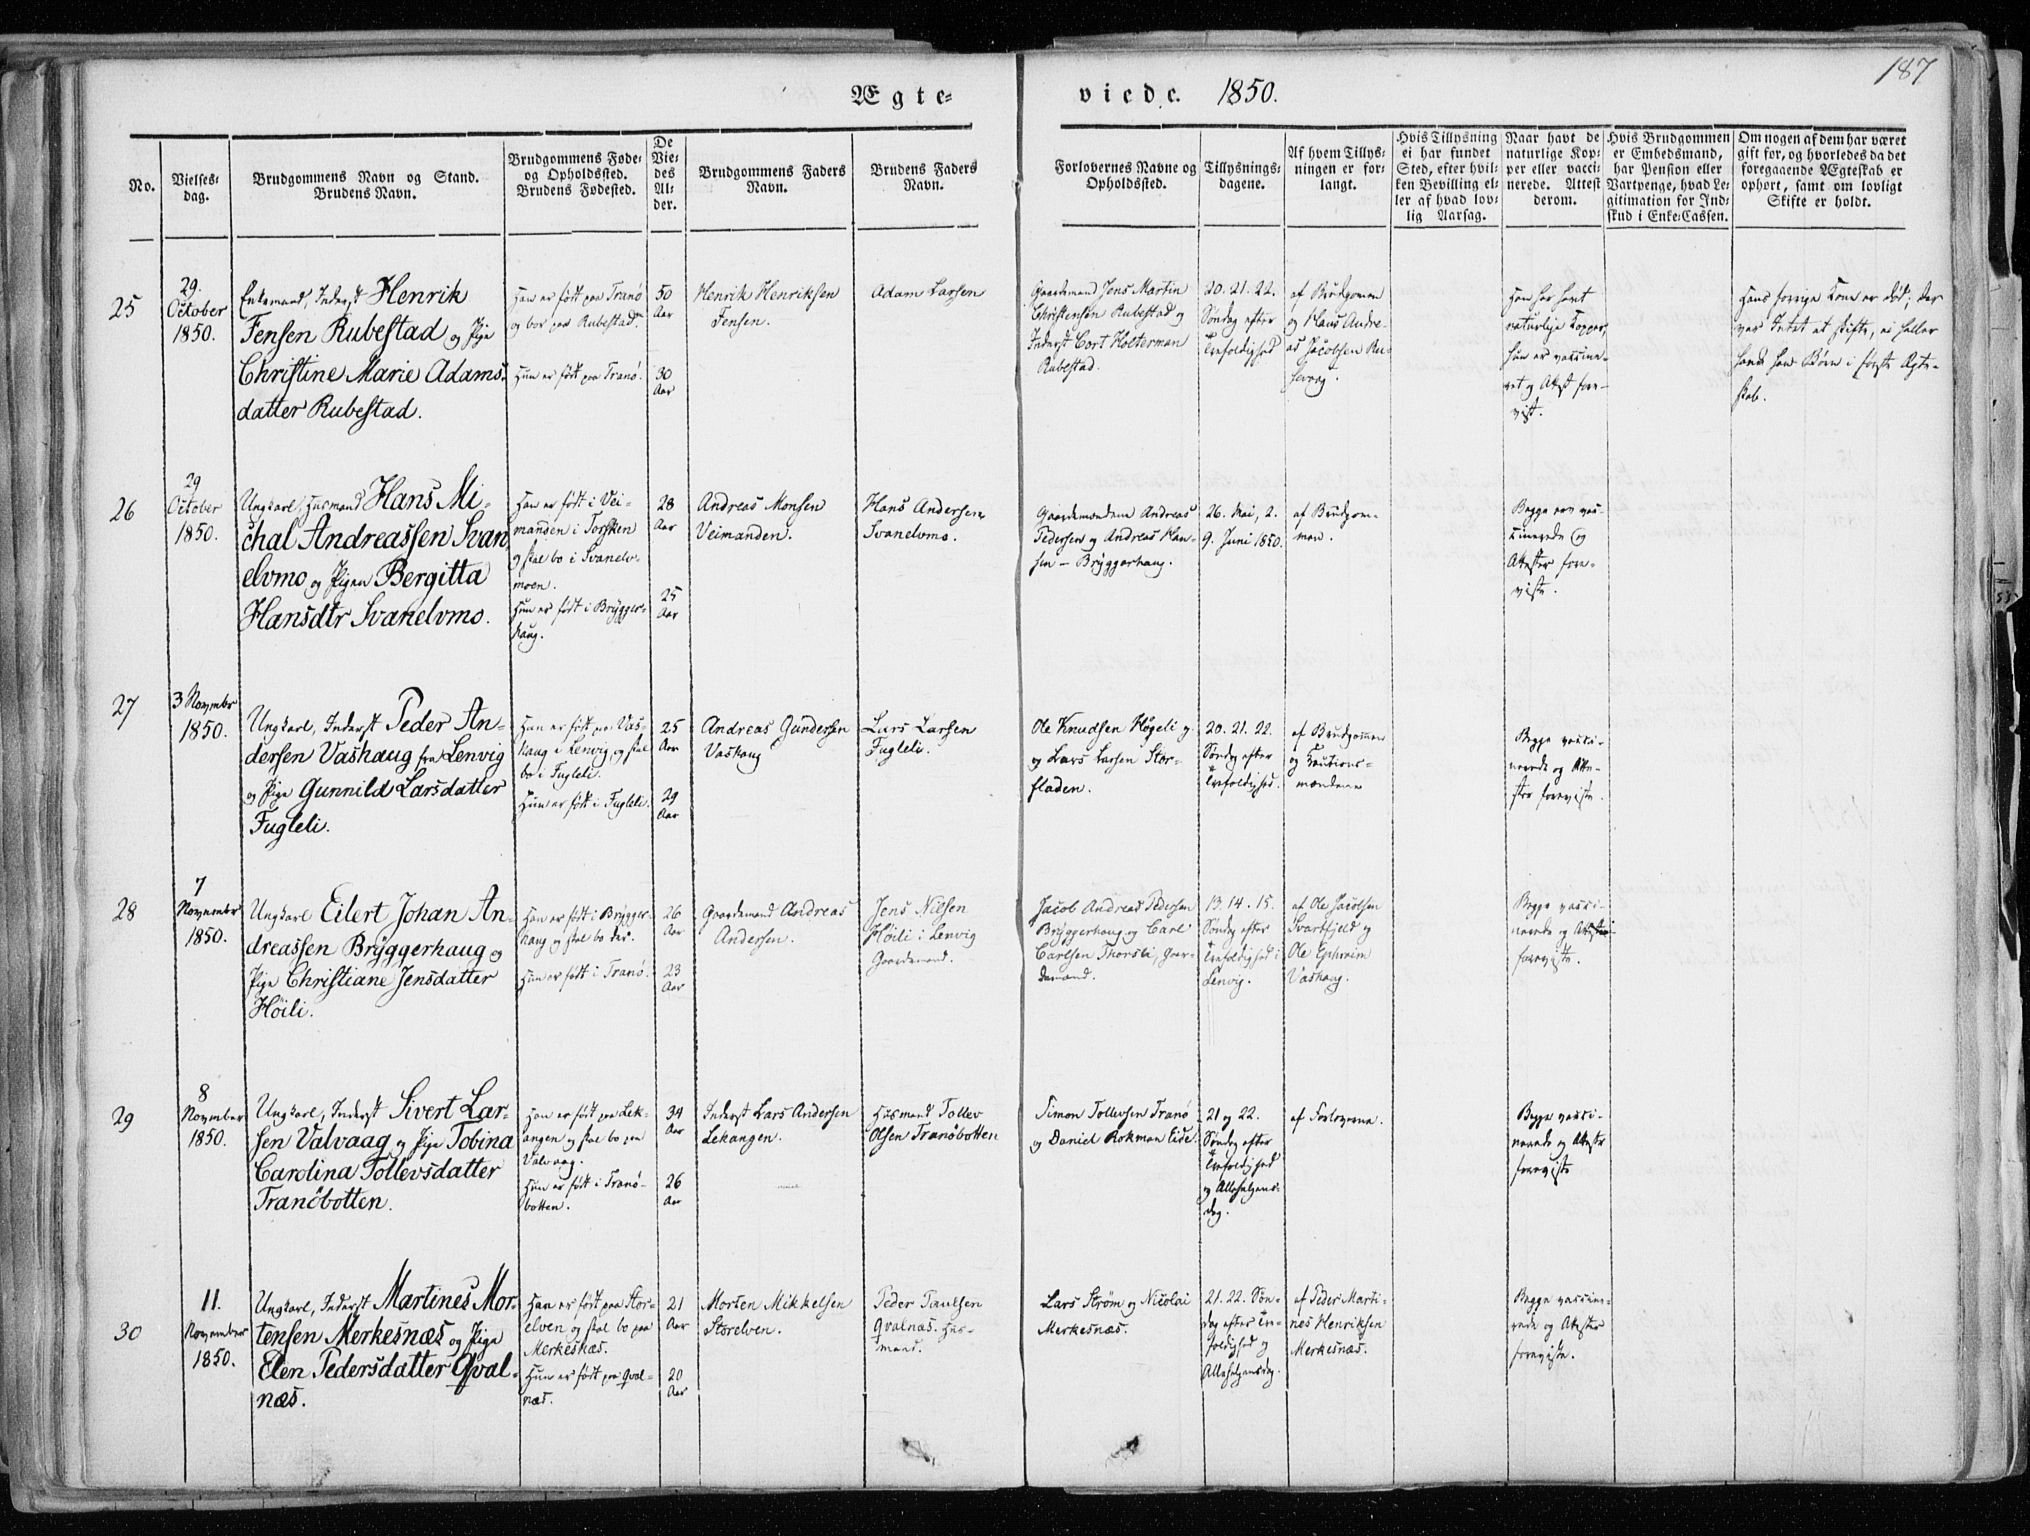 187
Ægte-
viede. 1850.
No.
Vielses-
dag.
Brudgommens Navn og Stand.
Brudens Navn.
Brudgommens Føde-
og Opholdssted.
Brudens Fødested.
De
Vie-
des
Al-
der.
Brudgommens Faders
Navn.
Brudens Faders
Navn.
Forlovernes Navne og
Opholdssted.
Tillysnings-
dagene.
Af hvem Tillys-
ningen er for-
langt.
Hvis Tillysning
ei har fundet
Sted, efter hvil-
ken Bevilling el-
ler af hvad lov-
lig Aarsag.
Naar havt de
naturlige Kop-
per eller vacci-
nerede. Attest
derom.
Hvis Brudgommen
er Embedsmand,
har Pension eller
Vartpenge, hvad Le-
gitimation for Ind-
skud i Enke-Cassen.
Om nogen af dem har været
gift før, og hvorledes da det
foregaaende Ægteskab er
ophørt, samt om lovligt
Skifte er holdt.
25
29.
October
1850.
Enkemand, Inderst Henrik
Jensen Rubestad og Pige
Christine Marie Adams-
datter Rubestad.
Han er født paa Tranö
og bor paa Rubestad.
Hun er født paa Tranö.
50
Aar
30
Aar
Henrik Henriksen
Jensen.
Adam Larsen
Gaardmand Jens Martin
Christensen Rubestad og
Inderst Cort Holterman
Rubestad.
20. 21. 22.
Søndag efter
Trefoldighed
af Brudgomen
og Hans Andre-
as Jacobsen Ru-
sevaag.
Han har havt
naturlige Kopper,
hun er vaccine-
ret og Attest fore-
vist.
Hans forrige Kone er død; der
var Intet at skifte, ei heller
havde han Børn i første Ægte-
skab.
26
29
October
1850.
Ungkarl, Husmand Hans Mi-
chal Andreassen Svan-
elvmo og Pigen Bergitta
Hansdtr Svanelvmo.
Han er født i Vei-
manden i Torsken
og skal bo i Svanelv-
moen.
Hun er født i Brÿgger-
haug.
28
Aar
25
Aar
Andreas Monsen
Veimanden.
Hans Andersen
Svanelvmo.
Gaardmændene Andreas
Pedersen og Andreas Han-
sen - Brÿggerhaug.
26. Mai, 2.
9. Juni 1850.
af Brudgom-
men.
Begge ere vac-
cinerede og
Attester fore-
viste.
27
3 Novmbr
1850.
Ungkarl, Inderst Peder An-
dersen Vashaug fra Lenvig
og Pige Gunnild Larsdatter
Fugleli.
Han er født paa Vas-
haug i Lenvig og skal
bo i Fugleli.
Hun er født i Fugleli.
25
Aar
29
Aar
Andreas Gundersen
Vashaug
Lars Larsen
Fugleli.
Ole Knudsen Högeli og
og Lars Larsen Stor-
fladen.
20. 21. 22.
Søndag efter
Trefoldighed.
af Brudgommen
og Cautions-
mændene
Begge vacci-
nerede og Atte-
ster foreviste.
28
7
November
1850.
Ungkarl Eilert Johan An-
dreassen Brÿggerhaug og
Pige Christiane Jensdatter
Höili.
Han er født i Brÿgger-
haug og skal bo der.
Hun er født i Tranö.
26
Aar
23
Aar
Gaardmand Andreas
Andersen.
Jens Nilsen
Höili i Lenvig
Gaardmand.
Jacob Andreas Pedersen
Brÿggerhaug og Carl
Carlsen Thorsli, Gaar-
demænd.
13. 14. 15.
Søndag efter
Trefoldighed i
Lenvig.
af Ole Jacobsen
Svartfjeld og
Ole Ephraim
Vashaug.
Begge vacci-
nerede og Attester
foreviste.
29
8
November
1850.
Ungkarl, Inderst Sivert Lar-
sen Valvaag og Pige Tobina
Carolina Tollevsdatter
Tranöbotten.
Han er født paa Lek-
angen og skal bo paa
Valvaag.
Hun er født i Tranö-
botten.
34
Aar
26
Aar
Inderst Lars Andersen
Lekangen.
Husmand Tollev
Olsen Tranöbotten
Simon Tollevsen Tranö
og Daniel Rokman Eide.
21 og 22.
Søndag efter
Trefoldighed
og Allehelgens-
dag.
af Forloverne.
Begge vacci-
nerede og Attester
foreviste
30
11.
November
1850.
Ungkarl, Inderst Martines Mor-
tensen Merkesnæs og Pige
Elen Pedersdatter Qval-
næs.
Han er født paa Stor-
elven og skal bo paa
Merkesnæs.
Hun er født paa Qval-
næs.
21
Aar
20
Aar
Morten Mikkelsen
Storelven.
Peder Paulsen
Qvalnæs. Hus-
mand.
Lars Strøm og Nicolai
Merkesnæs.
21. 22. Søn-
dag efter Tre-
foldighed og
Allehelgensdag.
af Peder Marti-
nes Henriksen
Merkesnæs.
Begge vaccine-
rede og Attester
foreviste.